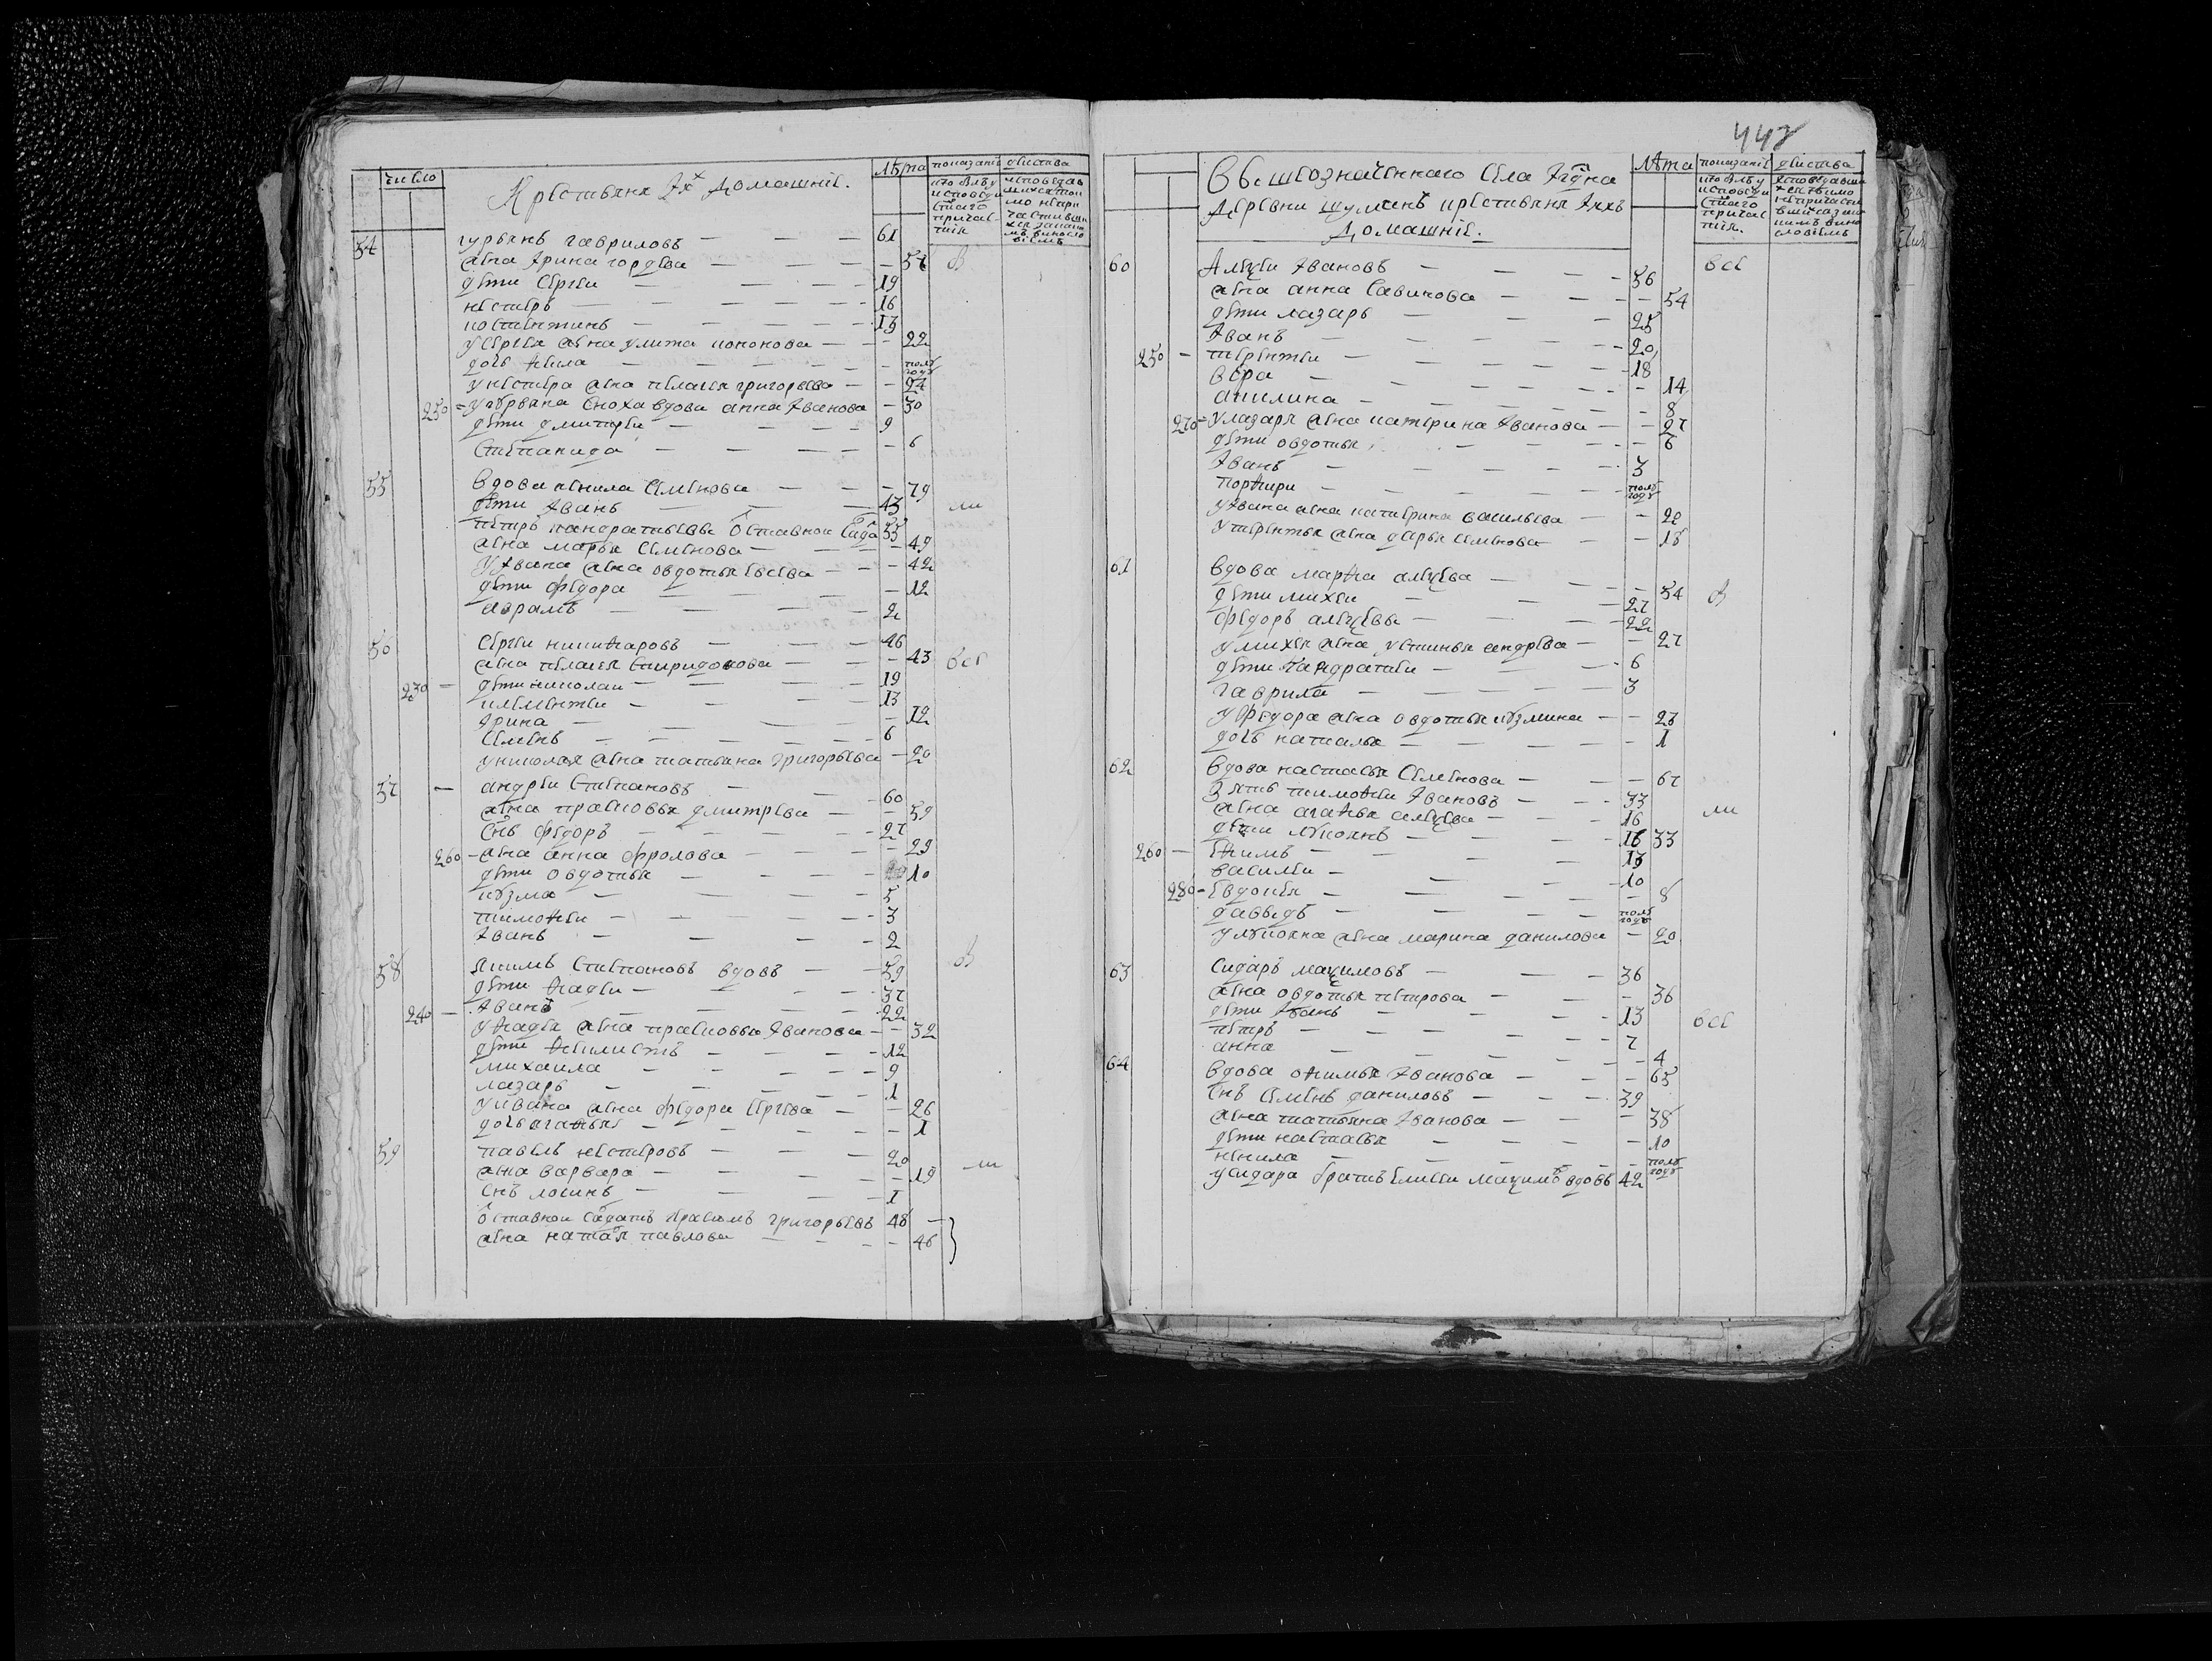 число
Крестьяня Ихъ Домашние.
лѣта
показание действа
кто былъ у исповеди святаго причастия
54 гурьянъ гавриловъ — 61
жена Ирина гордева — 57
дети Сергеи — 19
нестеръ — 16
костентинъ — 13
у сергея жена улита кононова — 22
дочь — полъ году
у нестера жена пелагея григорьева — 24
250 = у гурьяна сноха вдова анна Иванова — 30
дети дмитреи — 9
Степанида — 6
55 вдова ненила Семенова — 79
дети Иванъ — 43
петръ панкратьевы оставнои 35
жена марья Семенова — 49
У Ивана жена овдотья евсева — 42
дети федора — 12
аврамъ — 2
56 Сергеи никифаровъ — 46
жена пелагея Спиридонова — 43 все
230 — дети николаи — 19
клементеи — 13
Ирина — 12
Семенъ — 6
у николая жена татьяна григорьева — 20
57 — андреи Степановъ — 60
жена прасковья дмитрева — 59
Снъ федоръ — 27
260 — жена анна фролова — 29
дети овдотья — 10
кузма — 5
тимофеи — 3
Иванъ — 2
58 якимъ Степановъ вдовъ — 59
дети фадеи — 37
240 — Иванъ — 22
у фадея жена прасковья Иванова — 32
дети феклистъ — 12
михаила — 9
лазарь — 1
у ивана жена федора Сергева — 26
дочь агафья — 1
59 павелъ нестеровъ — 20
жена варвара — 19
Снъ логинъ — 1
оставнои салдатъ герасимъ григорьевъ 48 —
жена наталья павлова — 46
Вышеозначенного Села
деревни шуменъ крестьяня
Домашние.
лѣта
показание действа
кто былъ у исповеди святаго причастия.
60 Алексеи Ивановъ — 56 все
жена анна Савинова — 54
дети лазарь — 25
Иванъ — 20
250 — терентеи — 18
вера — 14
акилина — 8
270 = у лазаря жена катерина Иванова — 27
дети овдотья — 6
Иванъ — 3
порфири — полъ году
у Ивана жена катерина васильева — 22
у терентья жена дарья Семенова — 18
61 вдова марфа алексева — 54
дети михеи — 27
федоръ алексевы — 22
у михея жена устинья андрева — 27
дети панкратеи — 6
гаврила — 3
у федора жена овдотья кузмина — 23
дочь наталья — 1
62 вдова настасья Семенова — 67
Зять тимофеи Ивановъ — 33
жена агафья алексева — 16
дети лукоянъ — 16 33
260 — ефимъ — 13
василеи — 10
280 — Евдокея — 8
давыдъ — полъ году
у лукояна жена марина данилова — 20
63 Сидаръ максимовъ — 36
жена овдотья петрова — 36
дети Иванъ — 13 все
петръ — 7
анна — 4
64 вдова офимья Иванова — 65
Снъ Семенъ даниловъ — 39
жена татьяна Иванова — 38
дети настасья — 10
ненила — полъ году
у Сидара братъ елисеи максимовъ вдовъ 42